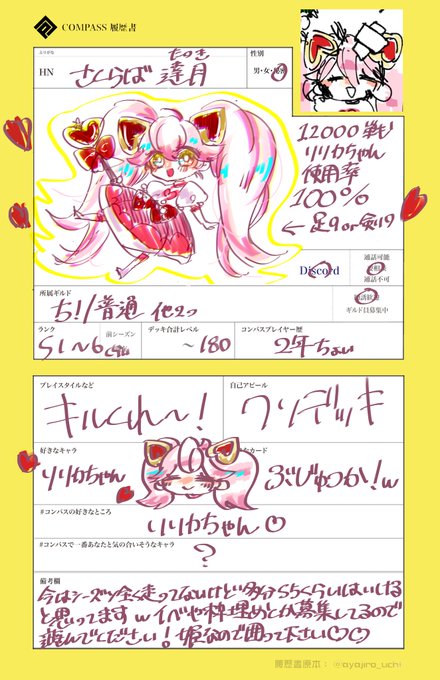 COMPASS 履歴書
ふりがな
たつき
HN
さくらば 達月
性別
男・女・秘密
12000戦
リリカちゃん
使用率
100%
← 足9or剣9
Discord
通話可能
通話不可
ギルド員募集中
所属ギルド
ち!/普通 他2つ
ランク
S1〜6くらい
前シーズン
デッキ合計レベル
〜180
コンパスプレイヤー歴
2年ちょい
プレイスタイルなど
キルくれ〜!
自己アピール
ワンデッキ
好きなキャラ
リリカちゃん
カード
ぶじゅつか!w
#コンパスの好きなところ
リリカちゃん♡
#コンパスで一番あなたと気の合いそうなキャラ
?
備考欄
今はシーズン全く走ってないけど多分S5くらいはいける
と思ってますwイベや枠埋めとか募集してるので
遊んでください!姫なので囲って下さい♡♡
履歴書原本: @ayajiro_uchi